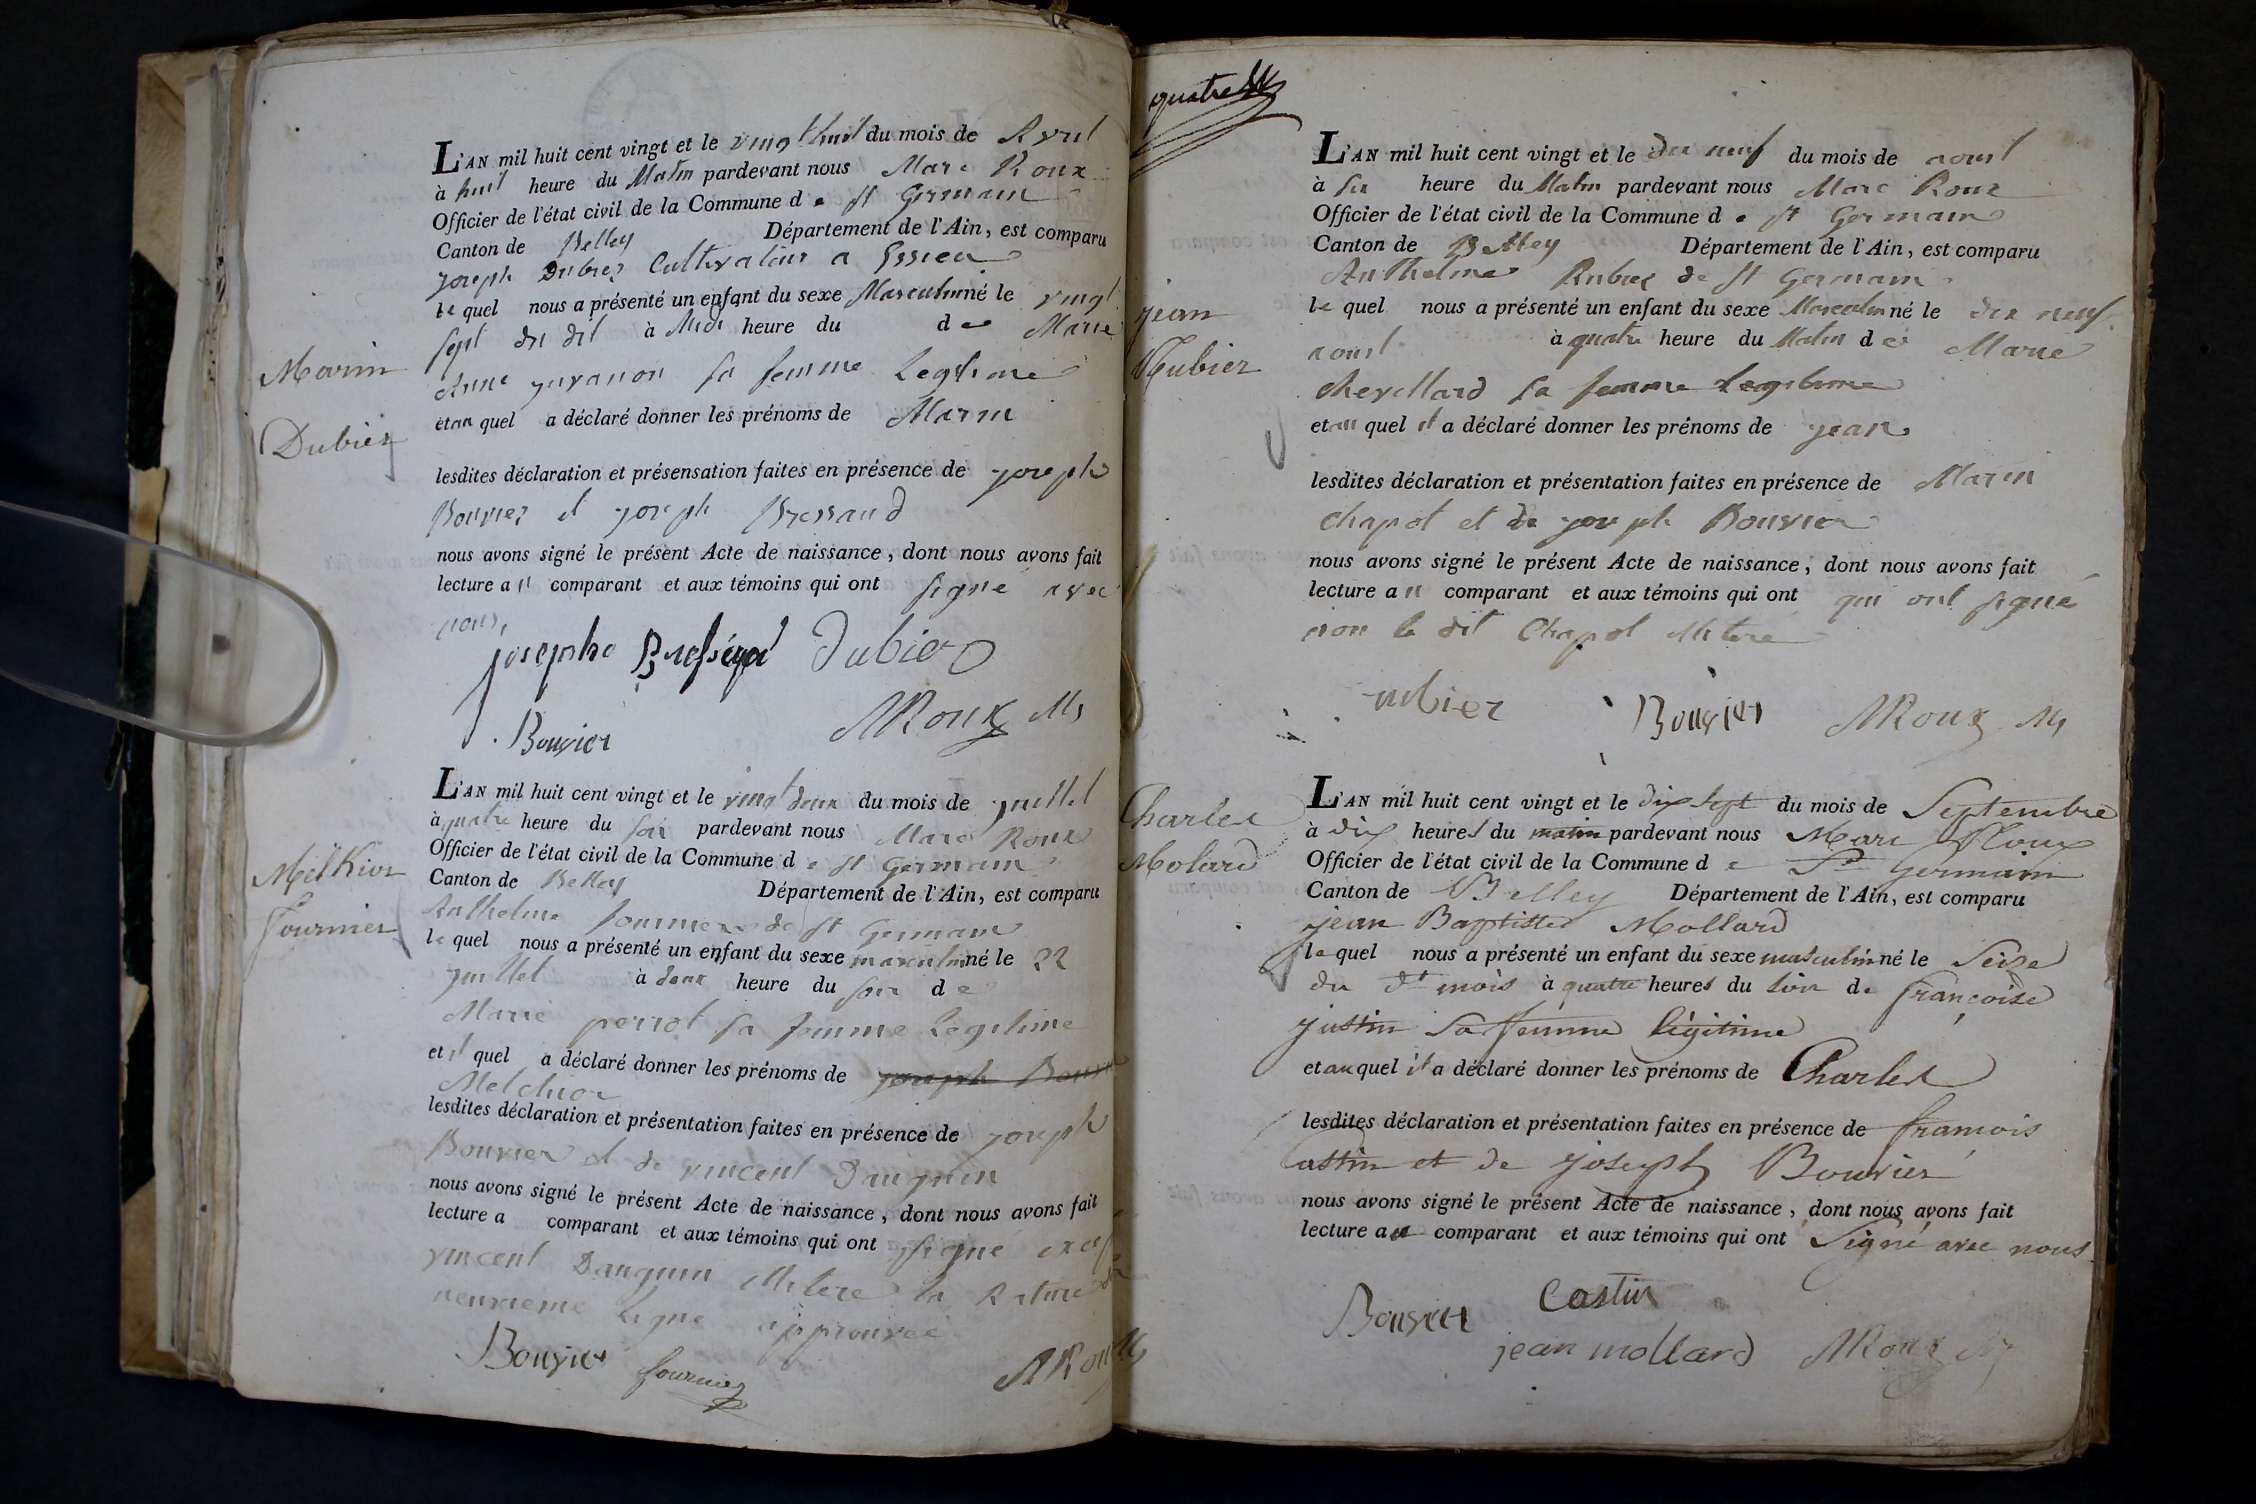 L'AN mil huit cent vingt et le vingt huit du mois de Avril
à huit heure du Matin pardevant nous Marc Roux
Officier de l'état civil de la Commune de st Germain
Canton de Belley Département de l'Ain, est comparu
joseph Dubiez Cultivateur a Essieu
le quel nous a présenté un enfant du sexe Masculin né le vingt
sept du dit à Midi heure du de Marie
Anne juvanon sa femme Legitime
et au quel a déclaré donner les prénoms de Marin
lesdites déclaration et présensation faites en présence de joseph
Bouvier et joseph Bressand
nous avons signé le présent Acte de naissance, dont nous avons fait
lecture au comparant et aux témoins qui ont signé avec
nous,
josephe Dubiez
Bouvier MRoux M
Marin
Dubiez
L'AN mil huit cent vingt et le vingt deux du mois de juillet
à quatre heure du soir pardevant nous Marc Roux
Officier de l'état civil de la Commune de st Germain
Canton de Belley Département de l'Ain, est comparu
Anthelme fournier de st Germain
le quel nous a présenté un enfant du sexe masculin né le 22
juillet à deux heure du soir de
Marie perrot sa femme Legitime
et il quel a déclaré donner les prénoms de joseph Bouv
Melchior
lesdites déclaration et présentation faites en présence de joseph
Bouvier et de vincent Dauguin
nous avons signé le présent Acte de naissance, dont nous avons fait
lecture a comparant et aux témoins qui ont signé
vincent Dauguin illitere la Rature
neuvieme ligne approuvee
Bouvier fournier MRoux M
Melkior
fournier
quatre
L'AN mil huit cent vingt et le dix neuf du mois de aoust
à six heure du Matin pardevant nous Marc Roux
Officier de l'état civil de la Commune de st Germain
Canton de Belley Département de l'Ain, est comparu
Anthelme Rubiez de st Germain
le quel nous a présenté un enfant du sexe Masculin né le dix neuf
aoust à quatre heure du Matin de Marie
chevillard sa femme Legitime
et au quel il a déclaré donner les prénoms de jean
lesdites déclaration et présentation faites en présence de Marin
chapot et de joseph Bouvier
nous avons signé le présent Acte de naissance, dont nous avons fait
lecture au comparant et aux témoins qui ont qui ont signé
non le dit Chapot illitere
rubiez Bouvier MRoux M
jean
Rubiez
L'AN mil huit cent vingt et le dix sept du mois de Septembre
à dix heures du matin pardevant nous Marc Roux
Officier de l'état civil de la Commune de St Germain
Canton de Belley Département de l'Ain, est comparu
jean Baptiste Mollard
le quel nous a présenté un enfant du sexe masculin né le Seize
du dt mois à quatre heures du soir de françoise
justin Sa femme légitime
et au quel il a déclaré donner les prénoms de Charles
lesdites déclaration et présentation faites en présence de françois
Castin et de joseph Bouvier
nous avons signé le présent Acte de naissance, dont nous avons fait
lecture au comparant et aux témoins qui ont Signé avec nous
Bouvier Castin
jean mollard MRoux M
Charles
Molard